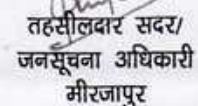 तहसीलदार सदर/
जनसूचना अधिकारी
मीरजापुर